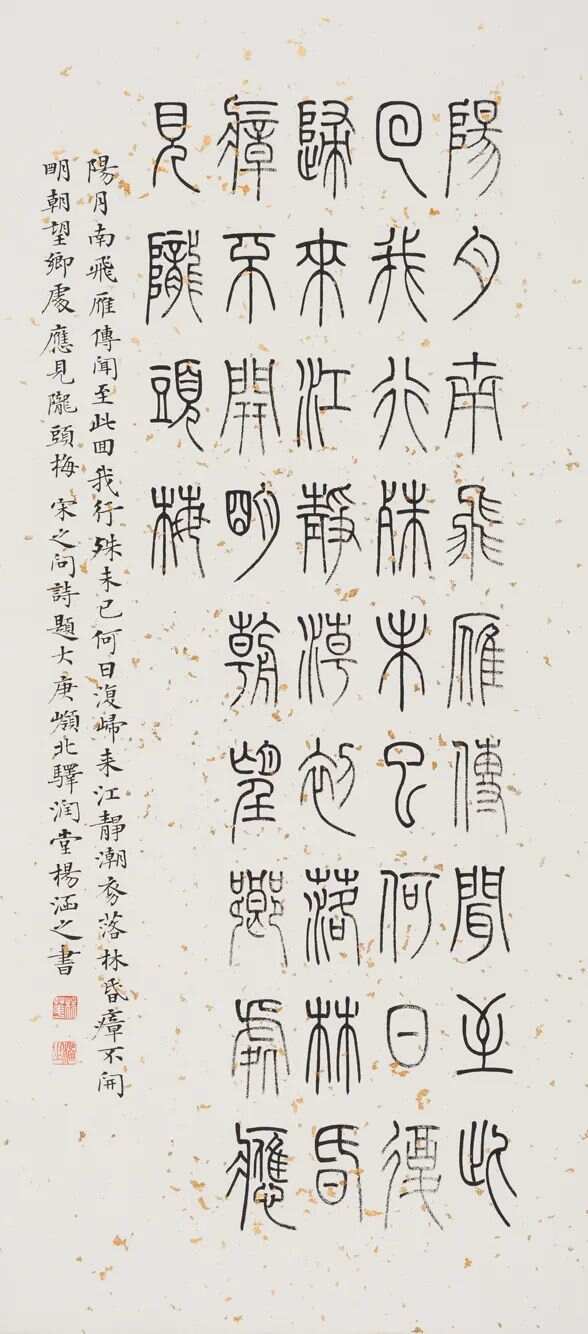 陽月南飛雁傳聞至此
回我行殊未已何日復
歸來江靜潮初落林昏
瘴不開明朝望鄉處應
見隴頭梅
陽月南飛雁傳聞至此回我行殊未已何日復歸来江靜潮初落林昏瘴不開
明朝望鄉處應見隴頭梅 宋之問詩題大庾嶺北驛潤堂楊涵之書